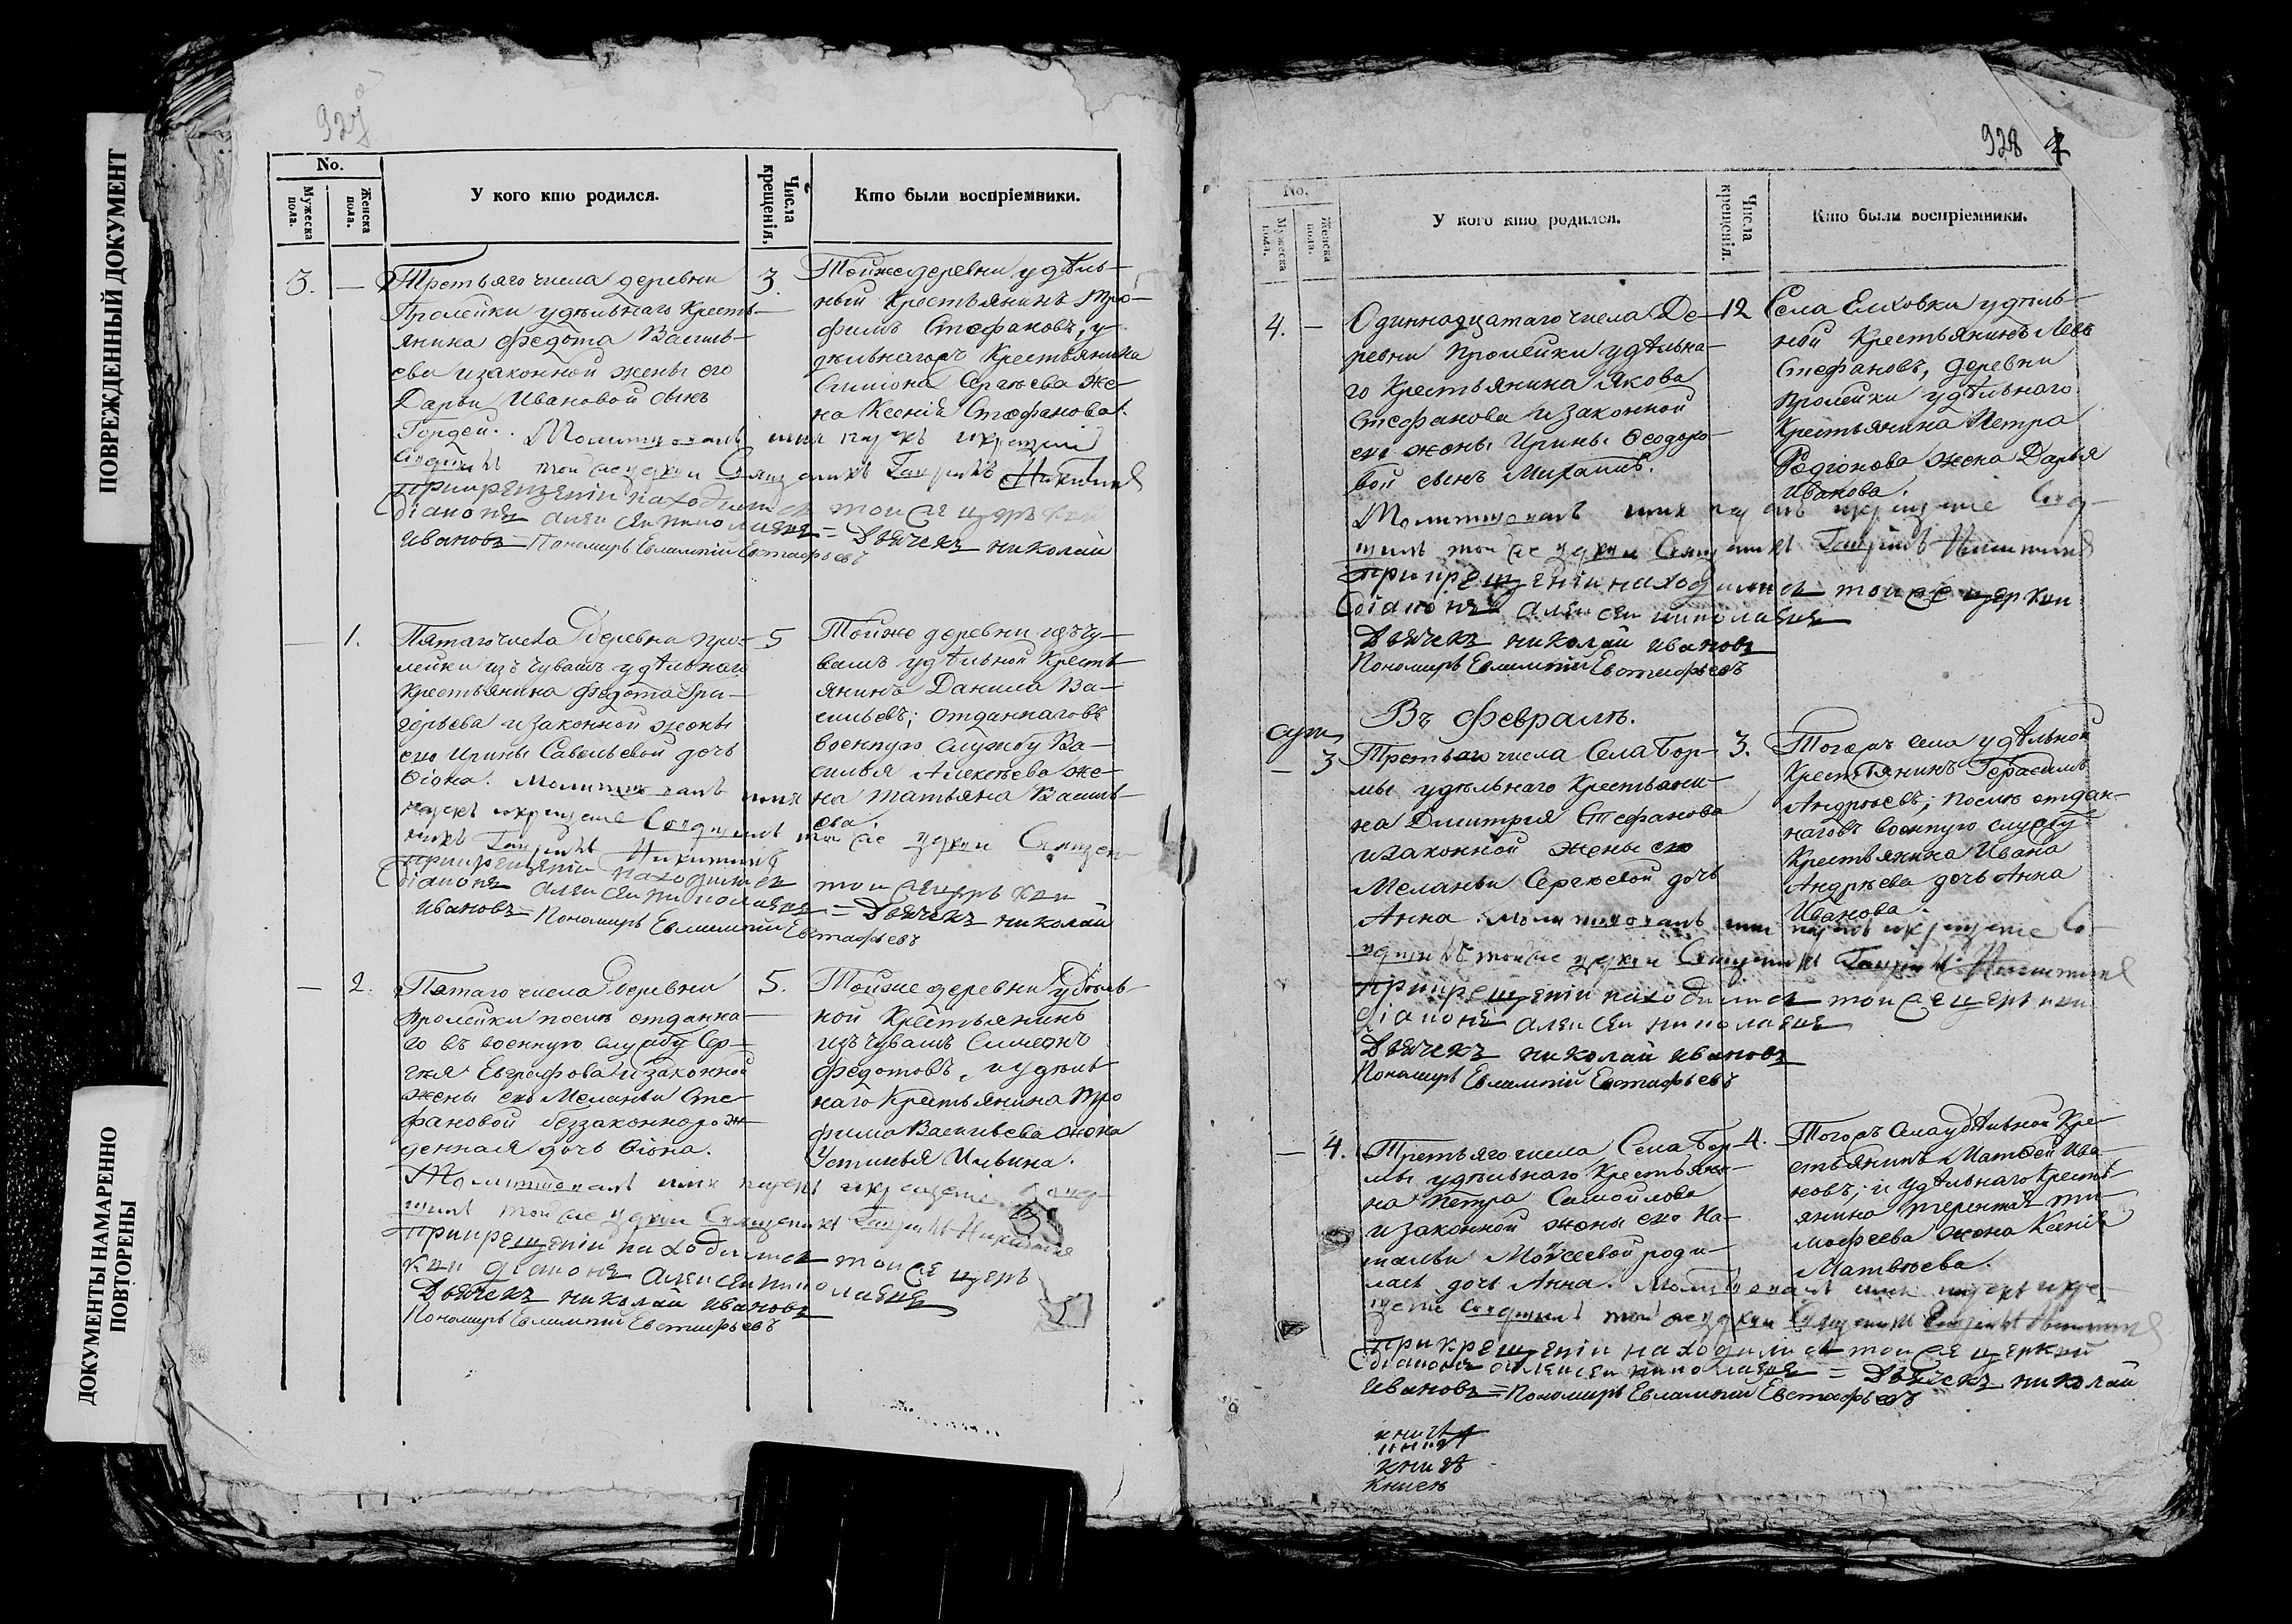 ПОВРЕЖДЕННЫЙ ДОКУМЕНТ
ДОКУМЕНТЫ НАМАРЕННО
ПОВТОРЕНЫ
927
No.
Мужеска
пола.
Женска
пола.
У кого кто родился.
Числа
крещенія,
Кто были воспріемники.
3. —
Третьяго числа деревни
Пролейки удѣльнаго Кресть-
янина Федота Василь-
ева изаконной жены его
Дарьи Ивановой сынъ
Гордей. Молитвовалъ имя нарекъ икрещеніе
тойже церкви Гаврилъ Никитинъ
Прикрещеніи находились тойже церькви
діаконъ алексеи николаевъ = Дьячекъ николай
ивановъ = Пономарь Евлампій Евстафьевъ
3.
Тойже деревни удѣль-
ный Крестьянинъ Тро-
фимъ Стефановъ, у-
дѣльнагожъ Крестьянина
Симіона Сергѣева же-
на Ксенія Стефанова.
— 1.
Пятаго числа Деревни про-
лейки изъ чувашъ удѣльнаго
Крестьянина Федота Гри-
горьева изаконной жены
его Ирины Савельевой дочь
Ѳіона. Молитвовалъ имя
нарекъ икрещеніе тойже церкви Священ-
никъ Гаврилъ Никитинъ
Прикрещеніи находились тойже церькви
діаконъ алексеи николаевъ = Дьячекъ николай
ивановъ = Пономарь Евлампій Евстафьевъ
5
Тойже деревни изъ чу-
вашъ удѣльной Кресть-
янинъ Данила Ва-
сильевъ; отданнаговъ
военную службу Ва-
силья Алексѣева же-
на татьяна Василь-
ева.
— 2.
Пятаго числа Деревни
Пролейки послѣ отданна-
го въ военную службу Сер-
гѣя Евграфова изаконной
жены его Меланьи Сте-
фановой беззаконнорож-
денная дочь Ѳіона.
Молитвовалъ имя нарекъ икрещеніе
тойже церкви Священникъ Гаврилъ Никитинъ
Прикрещеніи находились тойже церь
кви діаконъ Алексеи николаевъ
Дьячекъ николай ивановъ
Пономарь Евлампій Евстафьевъ
5.
Тойже деревни удѣль-
ной Крестьянинъ
изъ чувашъ Симеонъ
Федотовъ, иудѣль
наго Крестьянина Тро
фима Васильева жена
Устинья Ильина.
928
No.
Мужеска
пола.
Женска
пола.
У кого кто родился.
Числа
крещенія.
Кто были воспріемники.
4. —
Одиннадцатаго числа Де-
ревни Пролейки удѣльна-
го Крестьянина Якова
Стефанова изаконной
его жены Ирины Ѳеодоро-
вой сынъ Михаилъ.
Молитвовалъ имя нарекъ икрещеніе Совер-
шилъ тойже церкви Священникъ Гаврилъ Никитинъ
Прикрещеніи находились тойже церкви
діаконъ алексеи николаевъ
Дьячекъ николай ивановъ
Пономарь Евлампій Евстафьевъ
12
Села Елховки удѣль-
ной Крестьянинъ Левъ
Стефановъ, деревни
Пролейки удѣльнаго
Крестьянина Петра
Родіонова жена Дарья
Иванова.
Въ Февралѣ.
— 3
Третьяго числа Села Бор-
мы удѣльнаго Крестьяни-
на Димитрия Стефанова
изаконной жены его
Меланьи Сергѣевой дочь
Анна. Молитвовалъ имя нарекъ икрещеніе Со-
тойже церкви Священникъ Гаврилъ Никитинъ
Прикрещеніи находились тойже церькви
діаконъ алексеи николаевъ
Дьячекъ николай ивановъ
Пономарь Евлампій Евстафьевъ
3.
Тогожъ села удѣльной
Крестьянинъ Герасимъ
Андрѣевъ; послѣ отдан-
наговъ военную службу
Крестьянина Ивана
Андрѣева дочь Анна
Иванова.
— 4.
Третьяго числа Села Бор-
мы удѣльнаго Крестьяни-
на Петра Самойлова
изаконной жены его На-
тальи Моисеевой роди-
лась дочь Анна. Молитвовалъ имя нарекъ икре-
щеніе тойже церкви Священникъ Гаврилъ Никитинъ
Прикрещеніи находились тойже церкви
діаконъ алексеи николаевъ = Дьячекъ николай
ивановъ = Пономарь Евлампій Евстафьевъ
4.
Тогожъ села удѣльной Кре-
стьянинъ Матвей Ива-
новъ; и удѣльнаго Кресть-
янина терентья ти-
мофеева жена Ксенія
Матвѣева.